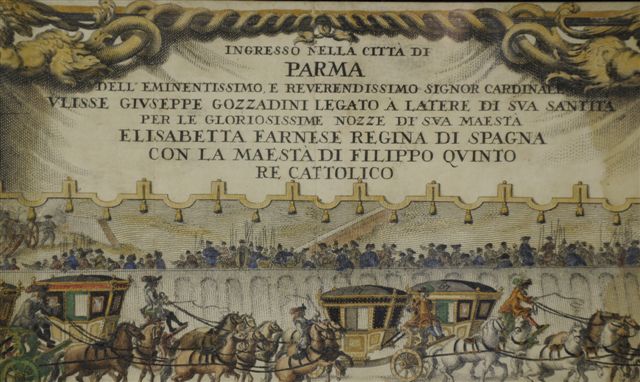 INGRESSO NELLA CITTÀ DI
PARMA
DELL'EMINENTISSIMO, E REVERENDISSIMO SIGNOR CARDINALE
VLISSE GIVSEPPE GOZZADINI LEGATO À LATERE DI SVA SANTITÀ
PER LE GLORIOSISSIME NOZZE DI SVA MAESTA
ELISABETTA FARNESE REGINA DI SPAGNA
CON LA MAESTÀ DI FILIPPO QVINTO
RE CATTOLICO